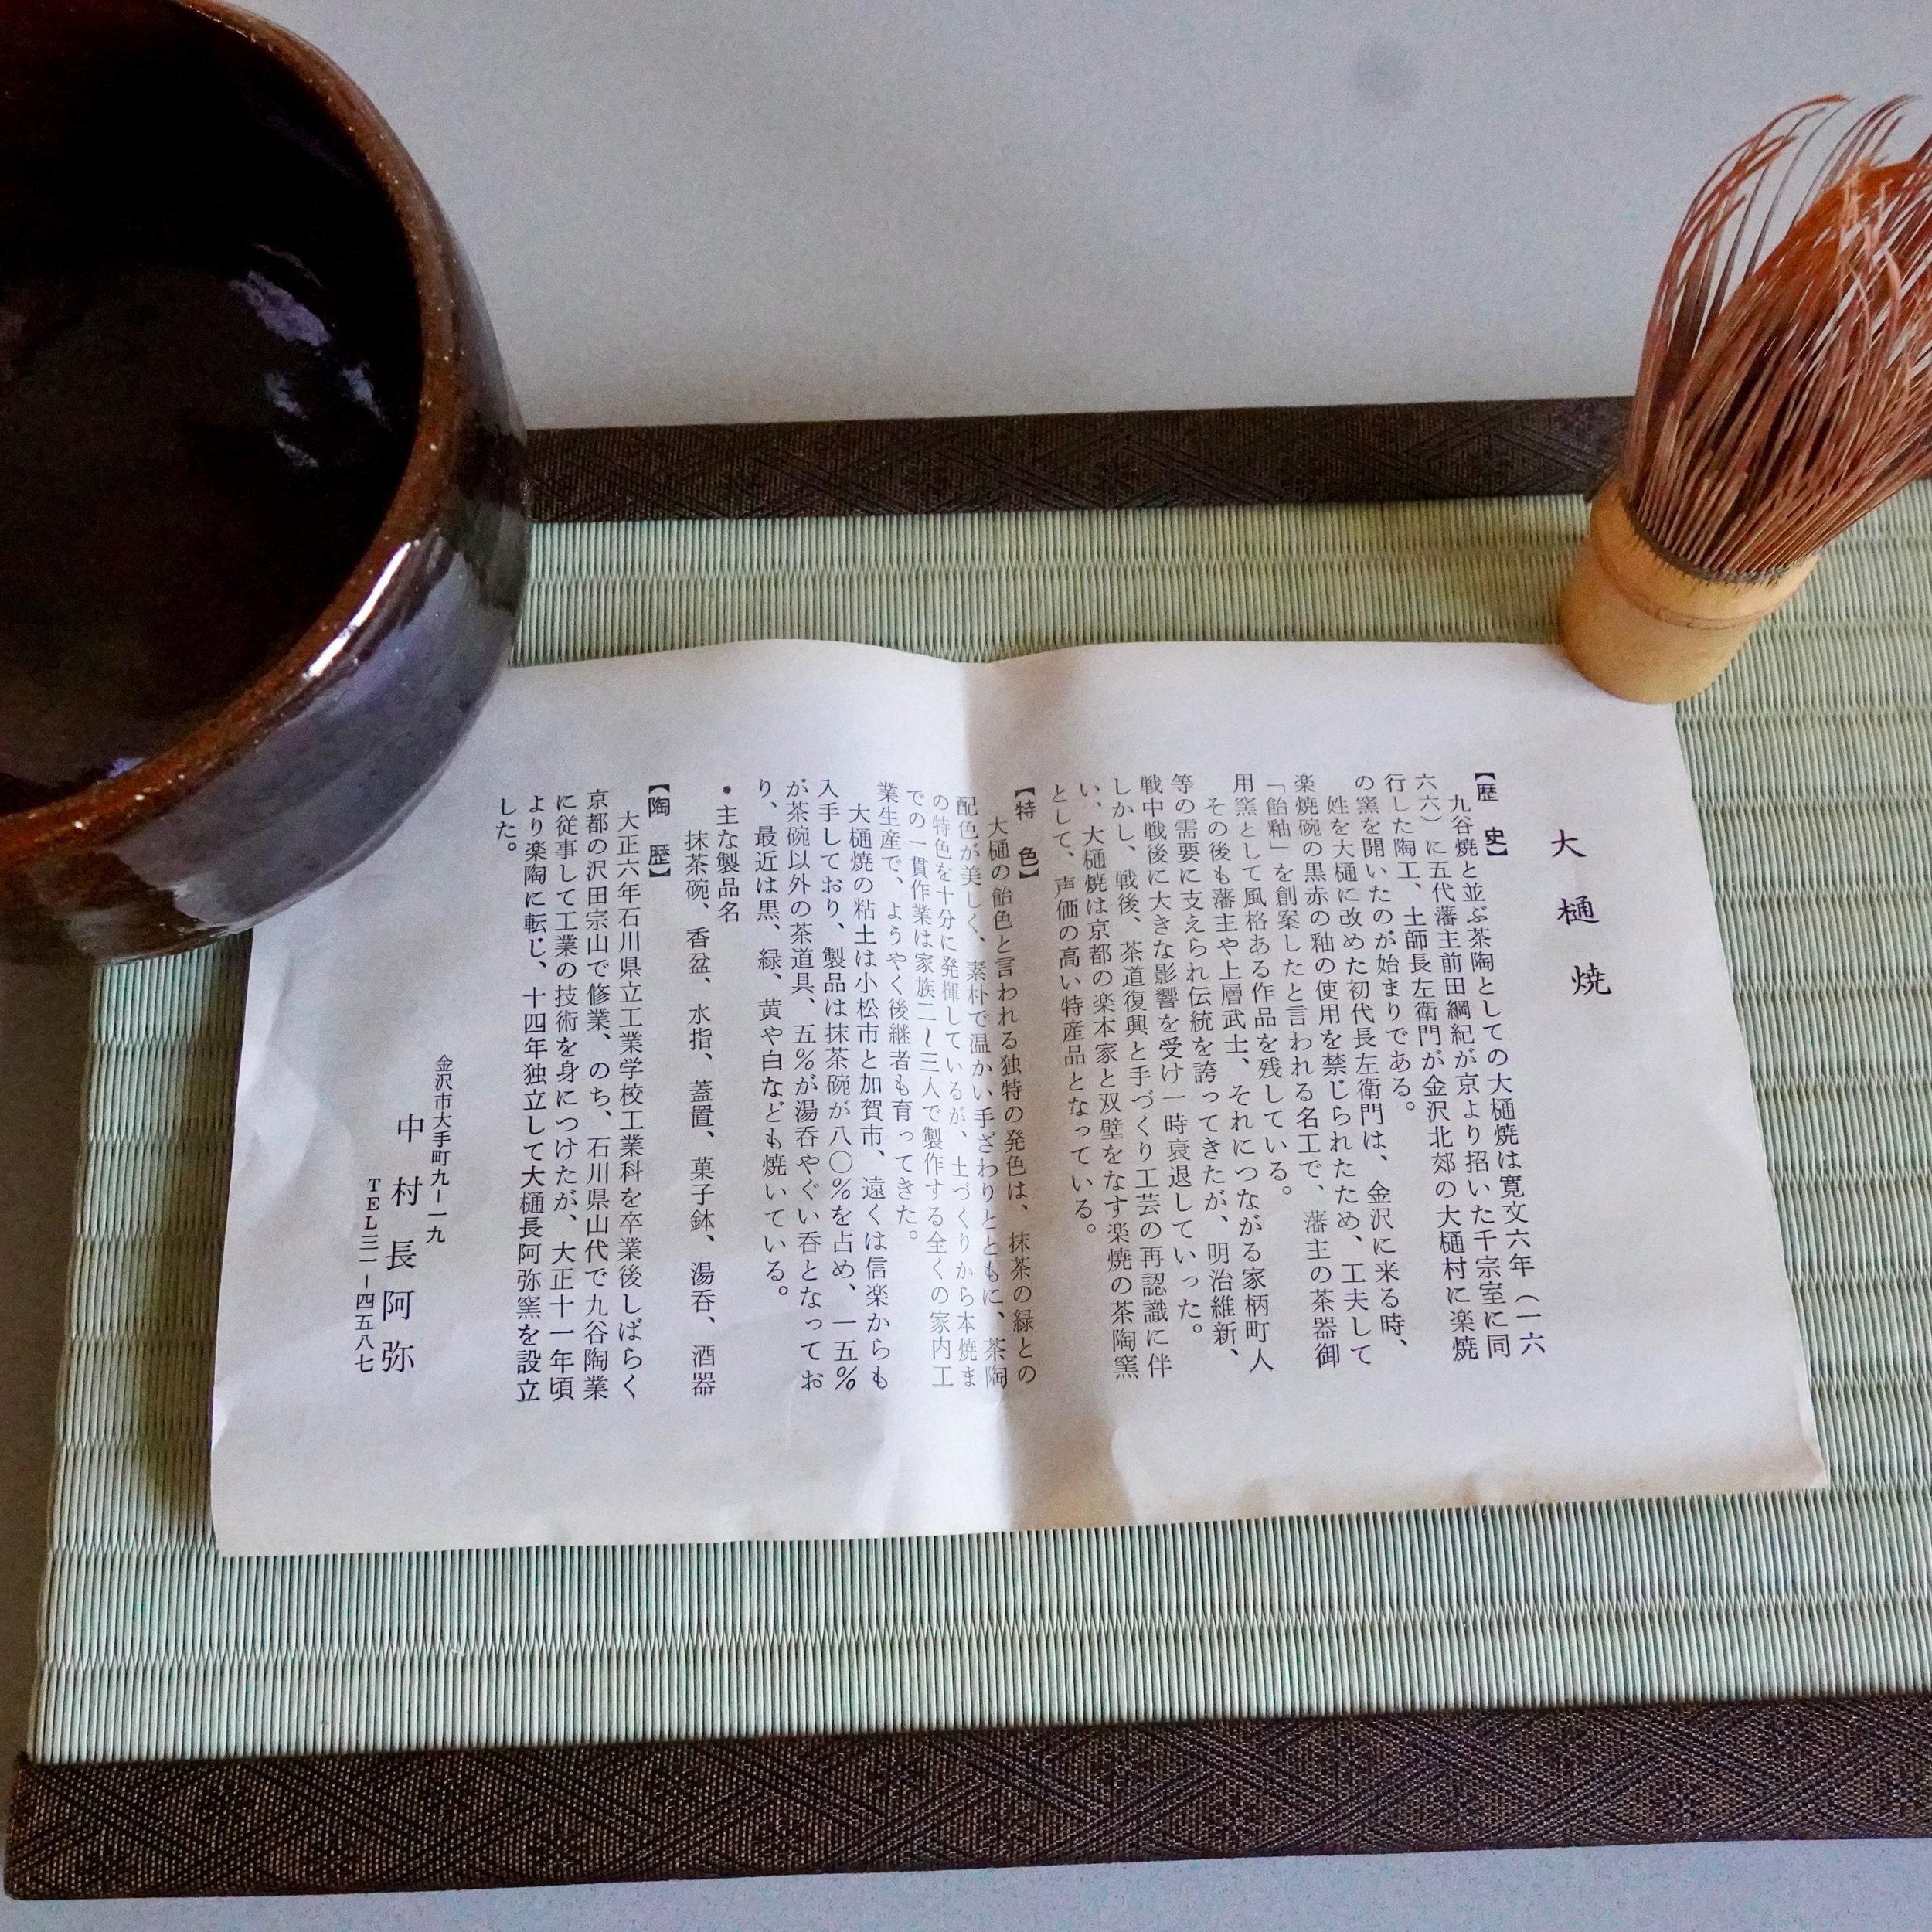 大樋焼
【歴 史】
九谷焼と並ぶ茶陶としての大樋焼は寛文六年（一六
六六）に五代藩主前田綱紀が京より招いた千宗室に同
行した陶工、土師長左衛門が金沢北郊の大樋村に楽焼
の窯を開いたのが始まりである。
姓を大樋に改めた初代長左衛門は、金沢に来る時、
楽焼碗の黒赤の釉の使用を禁じられたため、工夫して
「飴釉」を創案したと言われる名工で、藩主の茶器御
用窯として風格ある作品を残している。
その後も藩主や上層武士、それにつながる家柄町人
等の需要に支えられ伝統を誇ってきたが、明治維新、
戦中戦後に大きな影響を受け一時衰退していった。
しかし、戦後、茶道復興と手づくり工芸の再認識に伴
い、大樋焼は京都の楽本家と双壁をなす楽焼の茶陶窯
として、声価の高い特産品となっている。
【特 色】
大樋の飴色と言われる独特の発色は、抹茶の緑との
配色が美しく、素朴で温かい手ざわりとともに、茶陶
の特色を十分に発揮しているが、土づくりから本焼ま
での一貫作業は家族二〜三人で製作する全くの家内工
業生産で、ようやく後継者も育ってきた。
大樋焼の粘土は小松市と加賀市、遠くは信楽からも
入手しており、製品は抹茶碗が八〇％を占め、一五％
が茶碗以外の茶道具、五％が湯呑やぐい呑となってお
り、最近は黒、緑、黄や白なども焼いている。
●主な製品名
抹茶碗、香盆、水指、蓋置、菓子鉢、湯呑、酒器
【陶 歴】
大正六年石川県立工業学校工業科を卒業後しばらく
京都の沢田宗山で修業、のち、石川県山代で九谷陶業
に従事して工業の技術を身につけたが、大正十一年頃
より楽陶に転じ、十四年独立して大樋長阿弥窯を設立
した。
金沢市大手町九−一九
中村長阿弥
TEL三一−四五八七